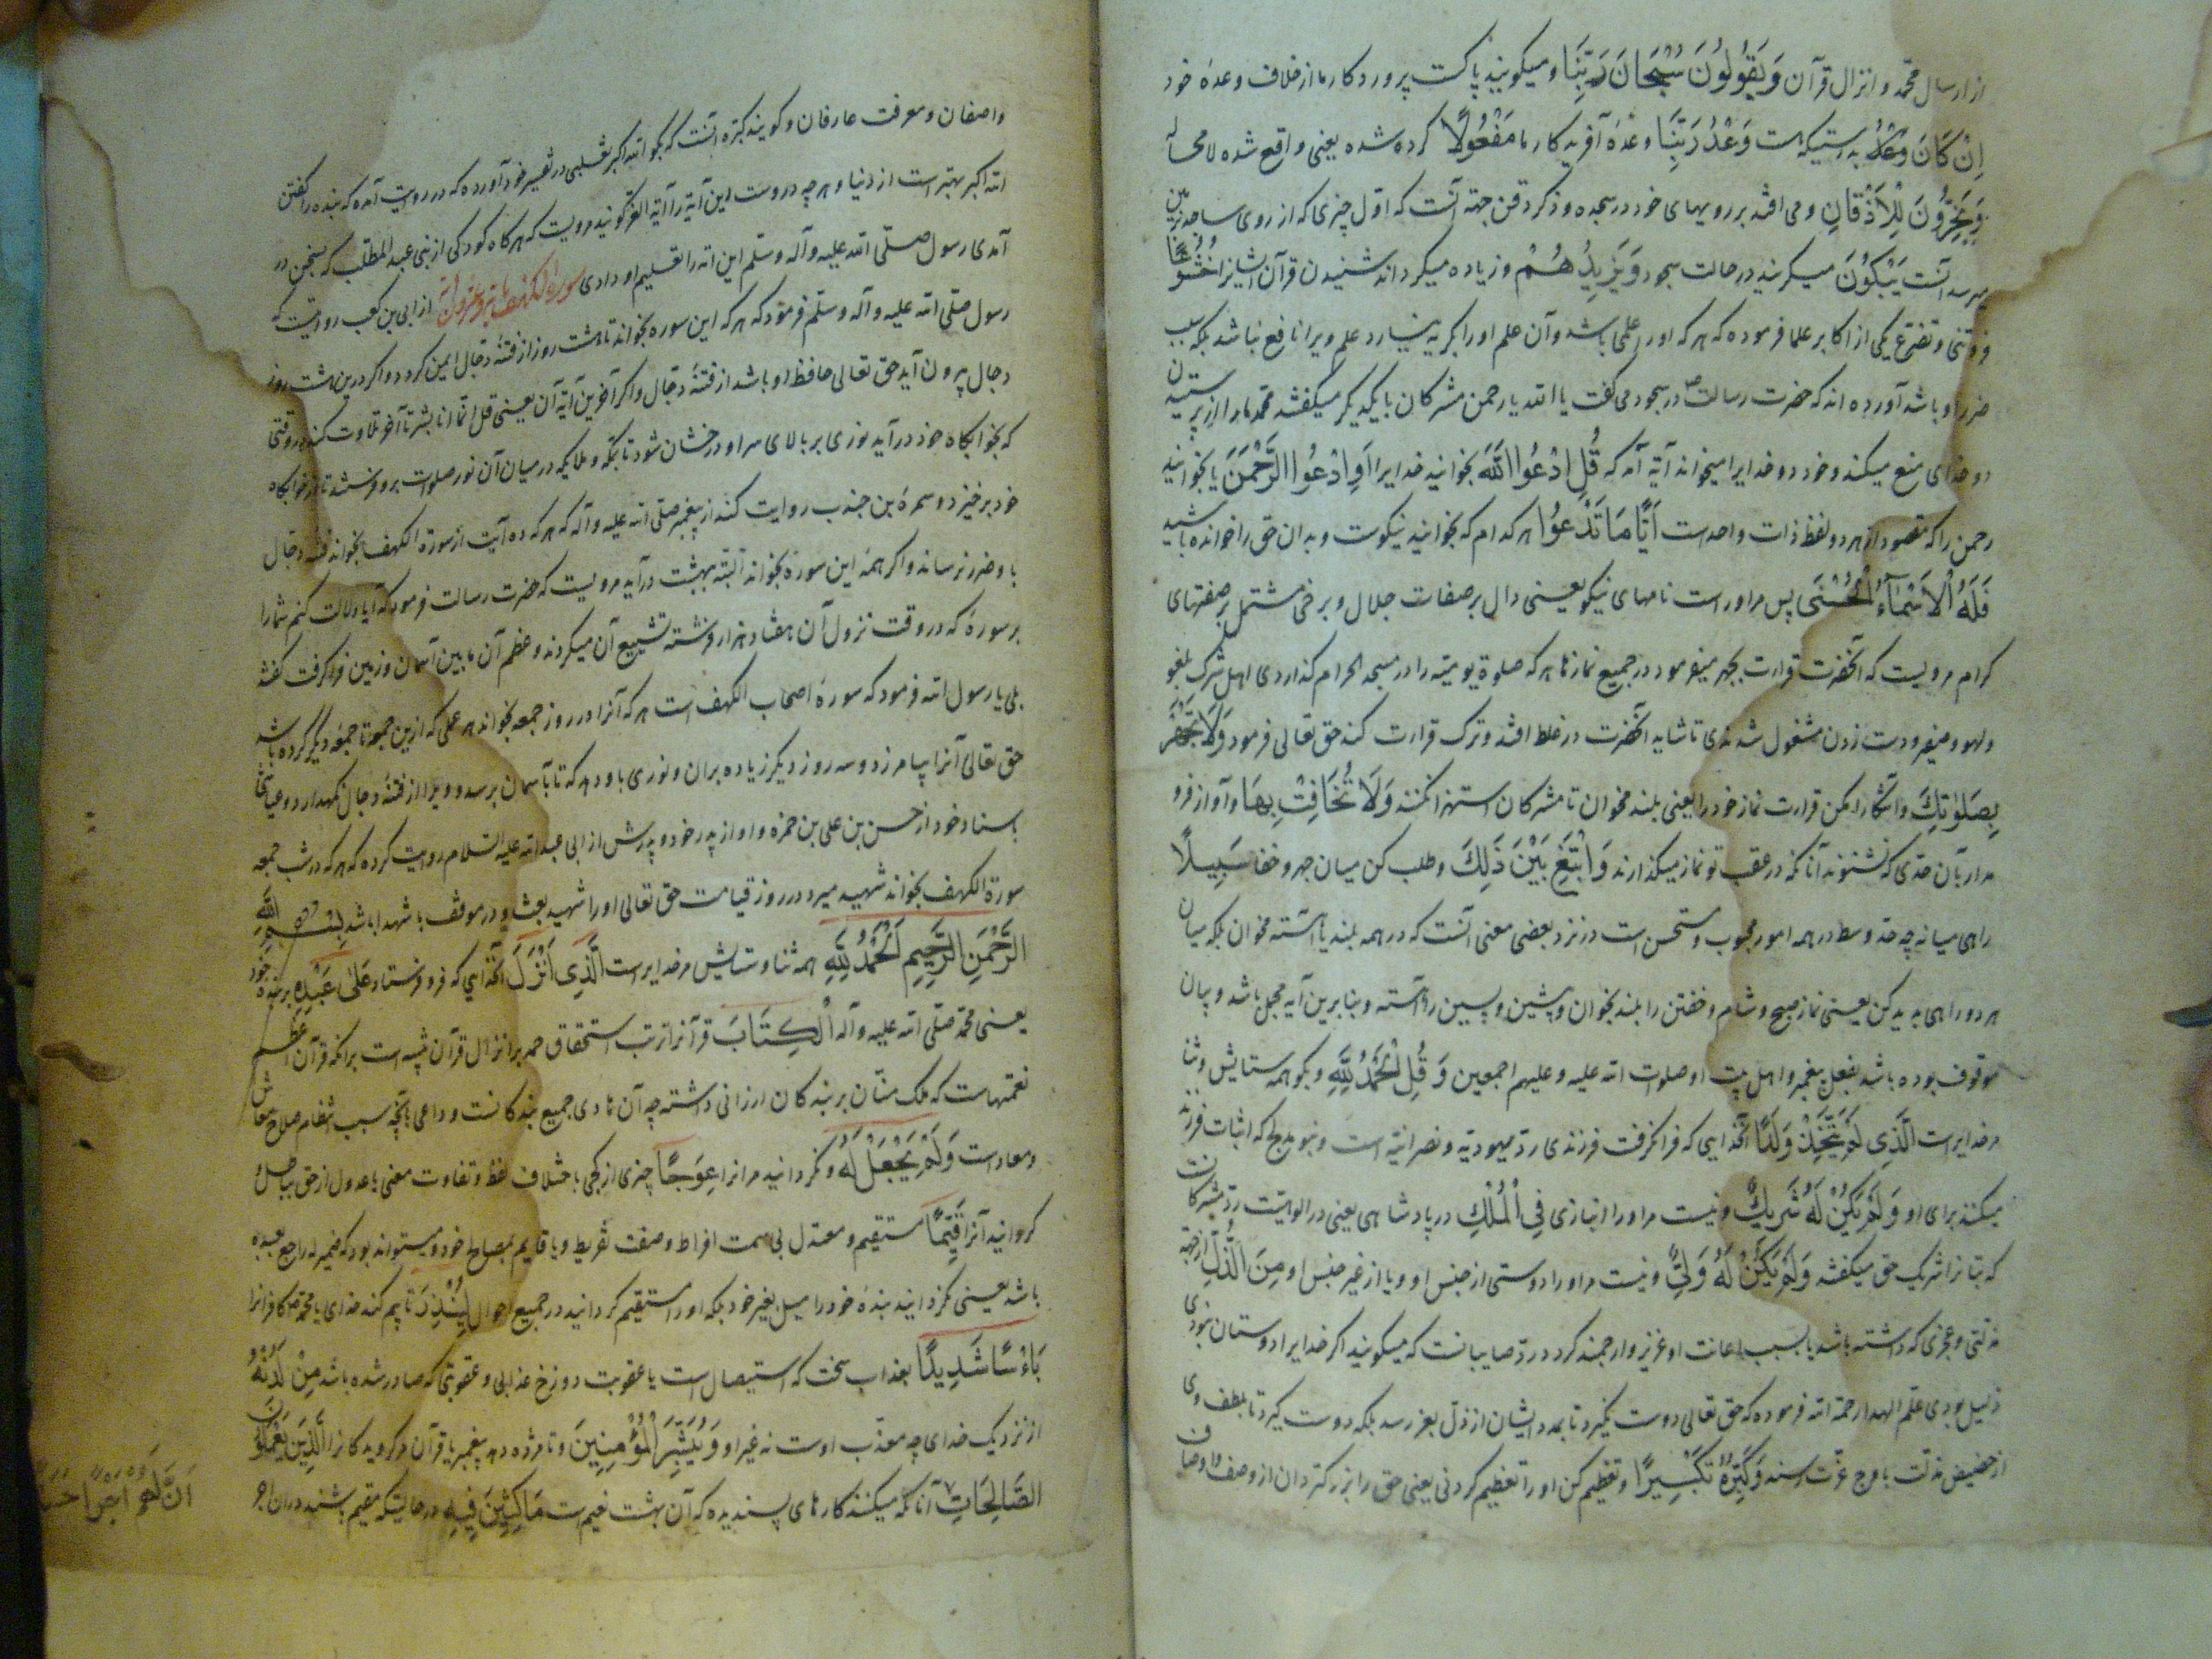 از ارسال محمد و انزال قرآن وَيَقُولُونَ سُبْحَانَ رَبِّنَا و میکویند پاکست پروردکار ما از خلاف وعدهٔ خود
اِنْ كَانَ وَعْدُ بدرستیکه هست وَعْدُ رَبِّنَا وعدهٔ آفریدکار ما مَفْعُولًا کرده شده یعنی واقع شده لا محاله
وَيَخِرُّونَ لِلْاَذْقَانِ و می افتند بر رویهای خود در سجده و ذکر ذقن جهة آنست که اوّل چیزی که از روی ساجد بزمین
میرسد آنست يَبْكُونَ میکریند در حالت سجود وَيَزِيدُهُمْ و زیاده میکرداند شنیدن قرآن ایشانرا خُشُوعًا
فروتنی و تضرع یکی از اکابر علما فرموده که هر که اورا علمی باشد و آن علم اورا بکریه نیارد علم ویرا نافع نباشد بلکه سبب
ضرر او باشد آورده اند که حضرت رسالت در سجود می کفت یا الله یا رحمن مشرکان با یکدیکر میکفتند محمد مارا از پرستیدن
دو خدای منع میکند و خود دو خدایرا میخواند آیة آمد که قُلِ ادْعُوا اللّٰهَ بخوانید خدایرا اَوِ ادْعُوا الرَّحْمٰنَ یا بخوانید
رحمن را که مقصود از هر دو لفظ ذات واحد است اَيًّا مَا تَدْعُوا هر کدام که بخوانید نیکوست و بدان حق را خوانده باشید
فَلَهُ الْاَسْمَآءُ الْحُسْنٰى پس مر اوراست نامهای نیکو یعنی دال بر صفات جلال و برخی مشتمل بر صفتهای
کرام مرویست که آنحضرت قرات بجهر میفرمود در جمیع نمازها هر که صلوة یومیّه را در مسجد الحرام کذاردی اهل شرک بلغو
و لهو و صفیر و دست زدن مشغول شدندی تا شاید آنحضرت در غلط افتد و ترک قرات کند حق تعالی فرمود وَلَا تَجْهَرْ
بِصَلٰوتِكَ و آشکارا مکن قرات نماز خود را یعنی بلند مخوان تا مشرکان استهزا نکنند وَلَا تُخَافِتْ بِهَا و آواز فرو
مدار بآن حدّی که نشنوند آنانکه در عقب تو نماز میکذارند وَابْتَغِ بَيْنَ ذٰلِكَ و طلب کن میان جهر و خفا سَبِيلًا
راهی میانه چه حدّ وسط در همه امور محبوب و مستحسن است و نزد بعضی معنی آنست که در همه بلند یا آهسته مخوان بلکه میان
هر دو راهی پدید کن یعنی نماز صبح و شام و خفتن را بلند بخوان و پیشین و پسین را آهسته و بنابرین آیه مجمل باشد و بیان
موقوف بوده باشد بفعل پیغمبر و اهل بیت او صلوات الله علیه و علیهم اجمعین وَقُلِ الْحَمْدُ لِلّٰهِ و بکو همه ستایش و ثنا
مر خدایراست الَّذِى لَمْ يَتَّخِذْ وَلَدًا آنخدایی که فرا نکرفت فرزندی ردّ یهودیّه و نصرانیّه است و بنو ملیح که اثبات فرزند
میکنند برای او وَلَمْ يَكُنْ لَهُ شَرِيكٌ و نیست مر اورا انبازی فِى الْمُلْكِ در پادشاهی یعنی در الوهیّت ردّ مشرکانست
که بتانرا شریک حق میکفتند وَلَمْ يَكُنْ لَهُ وَلِىٌّ و نیست مر اورا دوستی از جنس او و یا از غیر جنس او مِنَ الذُّلِّ از جهة
مذلتی و عجزی که داشته باشد یا بسبب اعانت او عزیز و ارجمند کردد ردّ صابیانست که میکویند اکر خدایرا دوستان نبودی
ذلیل بودی علم الهدا رحمة الله فرموده که حق تعالی دوست نکیرد تا بمدد ایشان از ذلّ بعز رسد بلکه دوست کیرد تا بلطف وی
از حضیض مذلت باوج عزّت رسند وَكَبِّرْهُ تَكْبِيرًا و تعظیم کن اورا تعظیم کردنی یعنی حق را بزرکتر دان از وصف واصفان
واصفان و معرفت عارفان و کویند کبّره آنست که بکو الله اکبر ثعلبی در تفسیر خود آورده که در روایت آمده که بنده را کفتن
الله اکبر بهتر است از دنیا و هر چه دروست این آیة را آیة العز کویند مرویست که هر کاه کودکی از بنی عبد المطلب که بسخن در
آمدی رسول صلّی الله علیه و آله و سلّم این آیه را تعلیم او دادی سورة الکهف از ابی بن کعب روایتست که
رسول صلّی الله علیه و آله و سلّم فرمود که هر که این سوره بخواند تا هشت روز از فتنهٔ دجال ایمن کردد و اکر درین هشت روز
دجال بیرون آید حق تعالی حافظ او باشد از فتنهٔ دجّال و اکر آخرین آیة آن یعنی قل انّما انا بشر تا آخر تلاوت کند در وقتی
که بخوابکاه خود درآید نوری بر بالای سر او درخشان شود تا بمکه و ملایکه در میان آن نور صلوات برو فرستند تا از خوابکاه
خود برخیزد و سمرة بن جندب روایت کند از پیغمبر صلی الله علیه و آله که هر که ده آیت از سورة الکهف بخواند فتنه دجال
باو ضرر نرساند و اکر همهٔ این سوره بخواند البته ببهشت درآید مرویست که حضرت رسالت فرمود که آیا دلالت کنم شمارا
بر سورهٔ که در وقت نزول آن هفتاد هزار فرشته تشییع آن میکردند و عظم آن مابین آسمان و زمین فرا کرفت کفتند
بلی یا رسول الله فرمود که سورهٔ اصحاب الکهف است هر که آنرا در روز جمعه بخواند هر عملی که ازین جمعه تا جمعهٔ دیکر کرده باشد
حق تعالی آنرا بیامرزد و سه روز دیکر زیاده بران و نوری باو دهد که تا بآسمان برسد و ویرا از فتنهٔ دجال نکهدارد و عیاشی
باسناد خود از حسن بن علی بن حمزه و او از پدر خود و پدرش از ابی عبد الله علیه السلام روایت کرده که هر که در شب جمعه
سورة الکهف بخواند شهید میرد و در روز قیامت حق تعالی اورا شهید بعث و در موقف با شهدا باشد بِسْمِ اللّٰهِ
الرَّحْمٰنِ الرَّحِيمِ اَلْحَمْدُ لِلّٰهِ همه ثنا و ستایش مر خدایراست الَّذِى اَنْزَلَ آنخدایی که فرو فرستاد عَلٰى عَبْدِهِ بر بندهٔ خود
یعنی محمّد صلّی الله علیه و آله الْكِتَابَ قرآنرا ترتب استحقاق حمد بر انزال قرآن تنبیه است برانکه قرآن اعظم
نعمتهاست که ملک منّان بر بندکان ارزانی داشته چه آن هادی جمیع بندکانست و داعی بآنچه سبب انتظام صلاح معاش
و معادست وَلَمْ يَجْعَلْ لَهُ و نکردانید مر انرا عِوَجًا چیزی از کجی باختلاف لفظ و تفاوت معنی یا عدول از حق بباطل
کردانید آنرا قَيِّمًا مستقیم و معتدل بی سمت افراط و صفت تفریط و یا قایم بمصالح خود و میتواند بود که ضمیر له راجع بعبده
باشد یعنی نکردانید بندهٔ خود را میل بغیر خود بلکه اورا مستقیم کردانید در جمیع احوال لِيُنْذِرَ تا بیم کند خدای یا محمّد کافرانرا
بَاْسًا شَدِيدًا بعذاب سخت که استیصال است یا عقوبت دوزخ عذابی و عقوبتی که صادر شده باشد مِنْ لَدُنْهُ
از نزدیک خدای چه معذب اوست نه غیر او وَيُبَشِّرَ الْمُؤْمِنِينَ و تا مژده دهد پیغمبر یا قرآن مر کرویدکانرا الَّذِينَ يَعْمَلُونَ
الصَّالِحَاتِ آنانکه میکنند کارهای پسندیده که آن بهشت نعیم است مَاكِثِينَ فِيهِ در حالتیکه مقیم باشند دران اجر
اَنَّ لَهُمْ اَجْرًا حَسَنًا